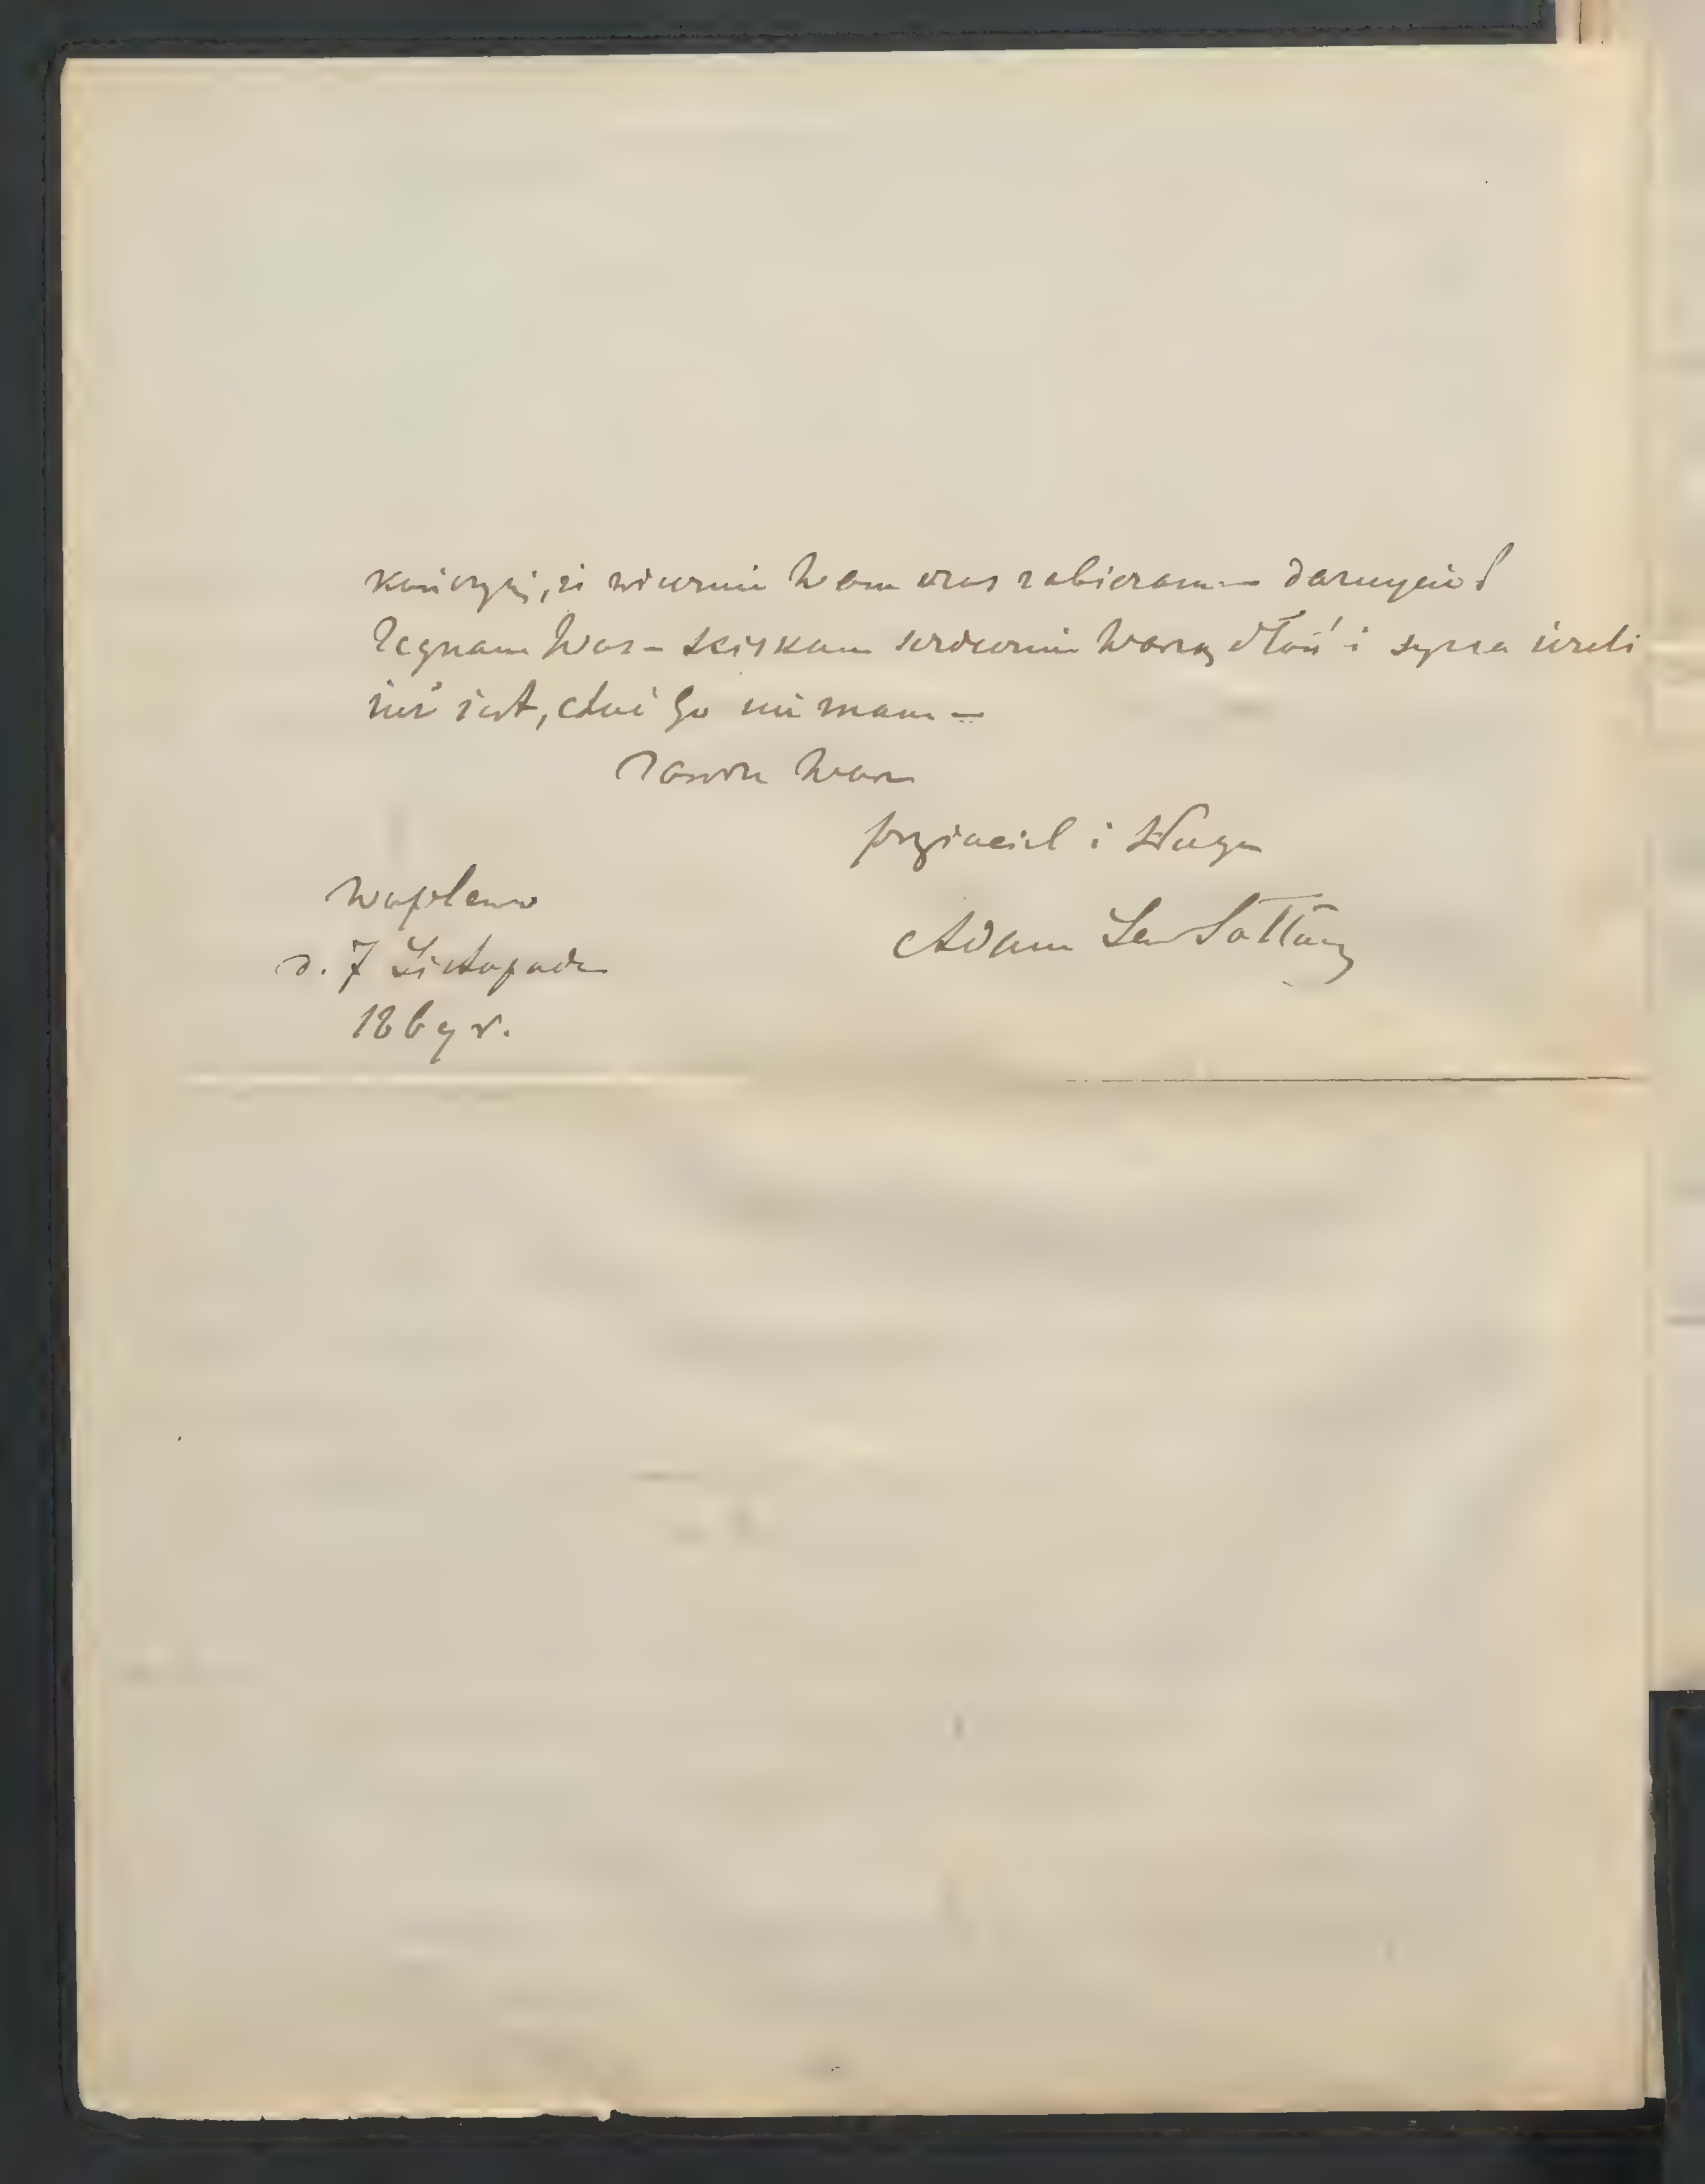 kończyć, że zdwornie Wam czas zabieram — darujcie!
Żegnam Was — sciskam serdecznie Waszą dłoń i syna ieżeli
iuż iest, choć go nie znam —
Zawsze Wasz
przyiaciel i sługa
Adam Lew Sołtan
Waplewo
d. 7 Listopada
1869 r.